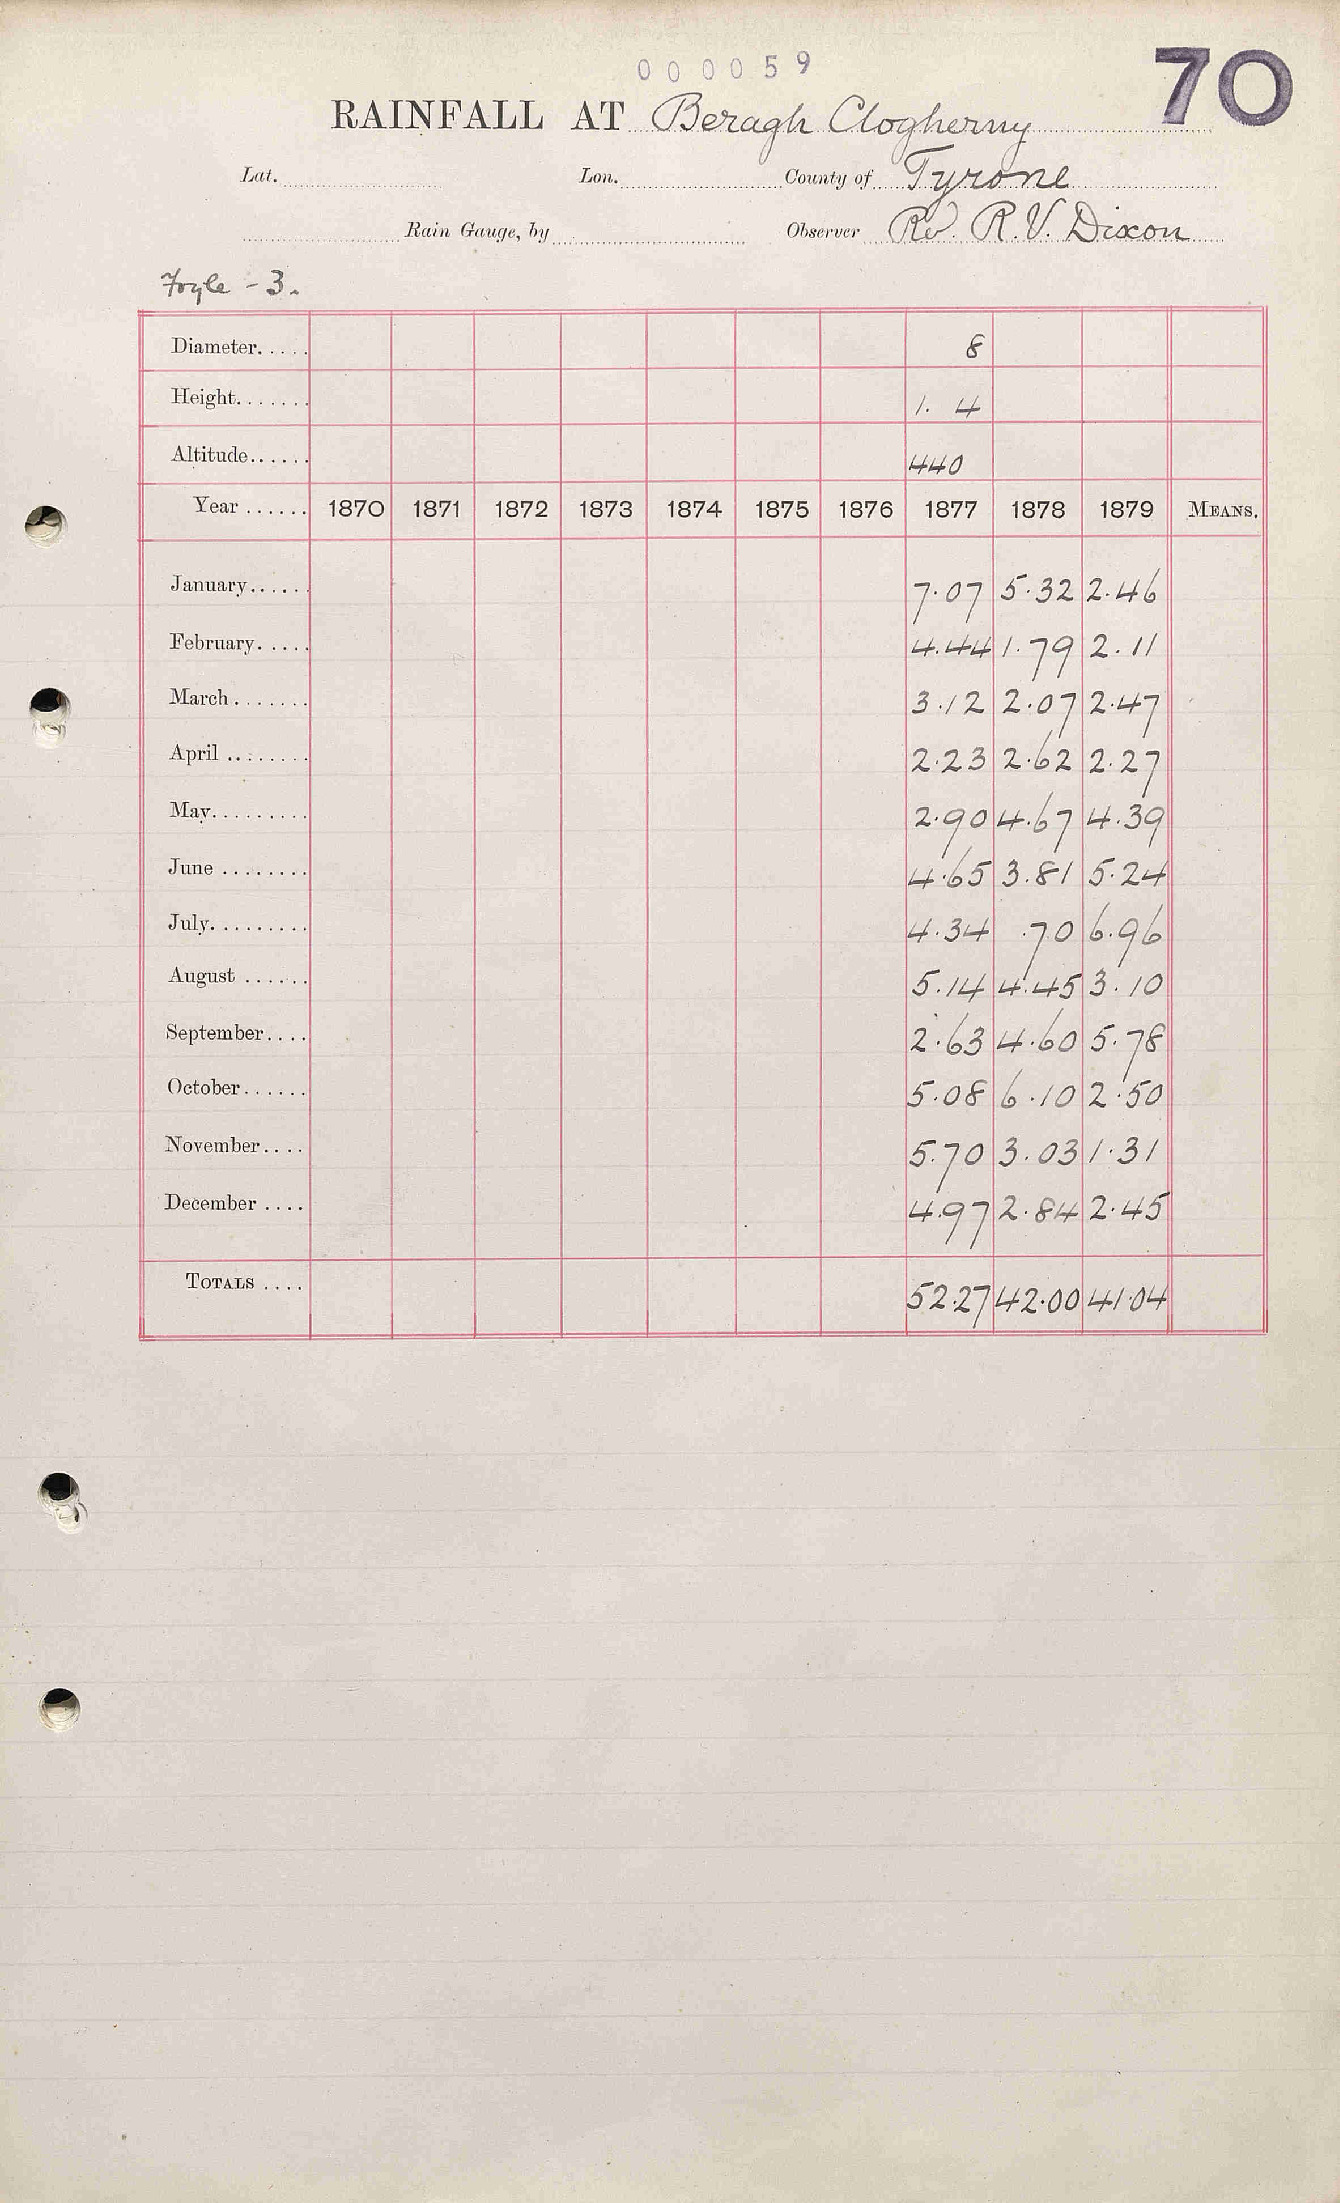 000059
70
RAINFALL AT Beragh Clogherny
Lat. Lon. County of Tyrone
Rain Gauge, by Observer Rev. R. V. Dixon
Foyle - 3.
Diameter..... 8
Height....... 1. 4
Altitude...... 440
Year ...... 1870 1871 1872 1873 1874 1875 1876 1877 1878 1879 MEANS.
January...... 7.07 5.32 2.46
February..... 4.44 1.79 2.11
March....... 3.12 2.07 2.47
April ........ 2.23 2.62 2.27
May......... 2.90 4.67 4.39
June ........ 4.65 3.81 5.24
July......... 4.34 .70 6.96
August ...... 5.14 4.45 3.10
September.... 2.63 4.60 5.78
October...... 5.08 6.10 2.50
November.... 5.70 3.03 1.31
December .... 4.97 2.84 2.45
TOTALS .... 52.27 42.00 41.04